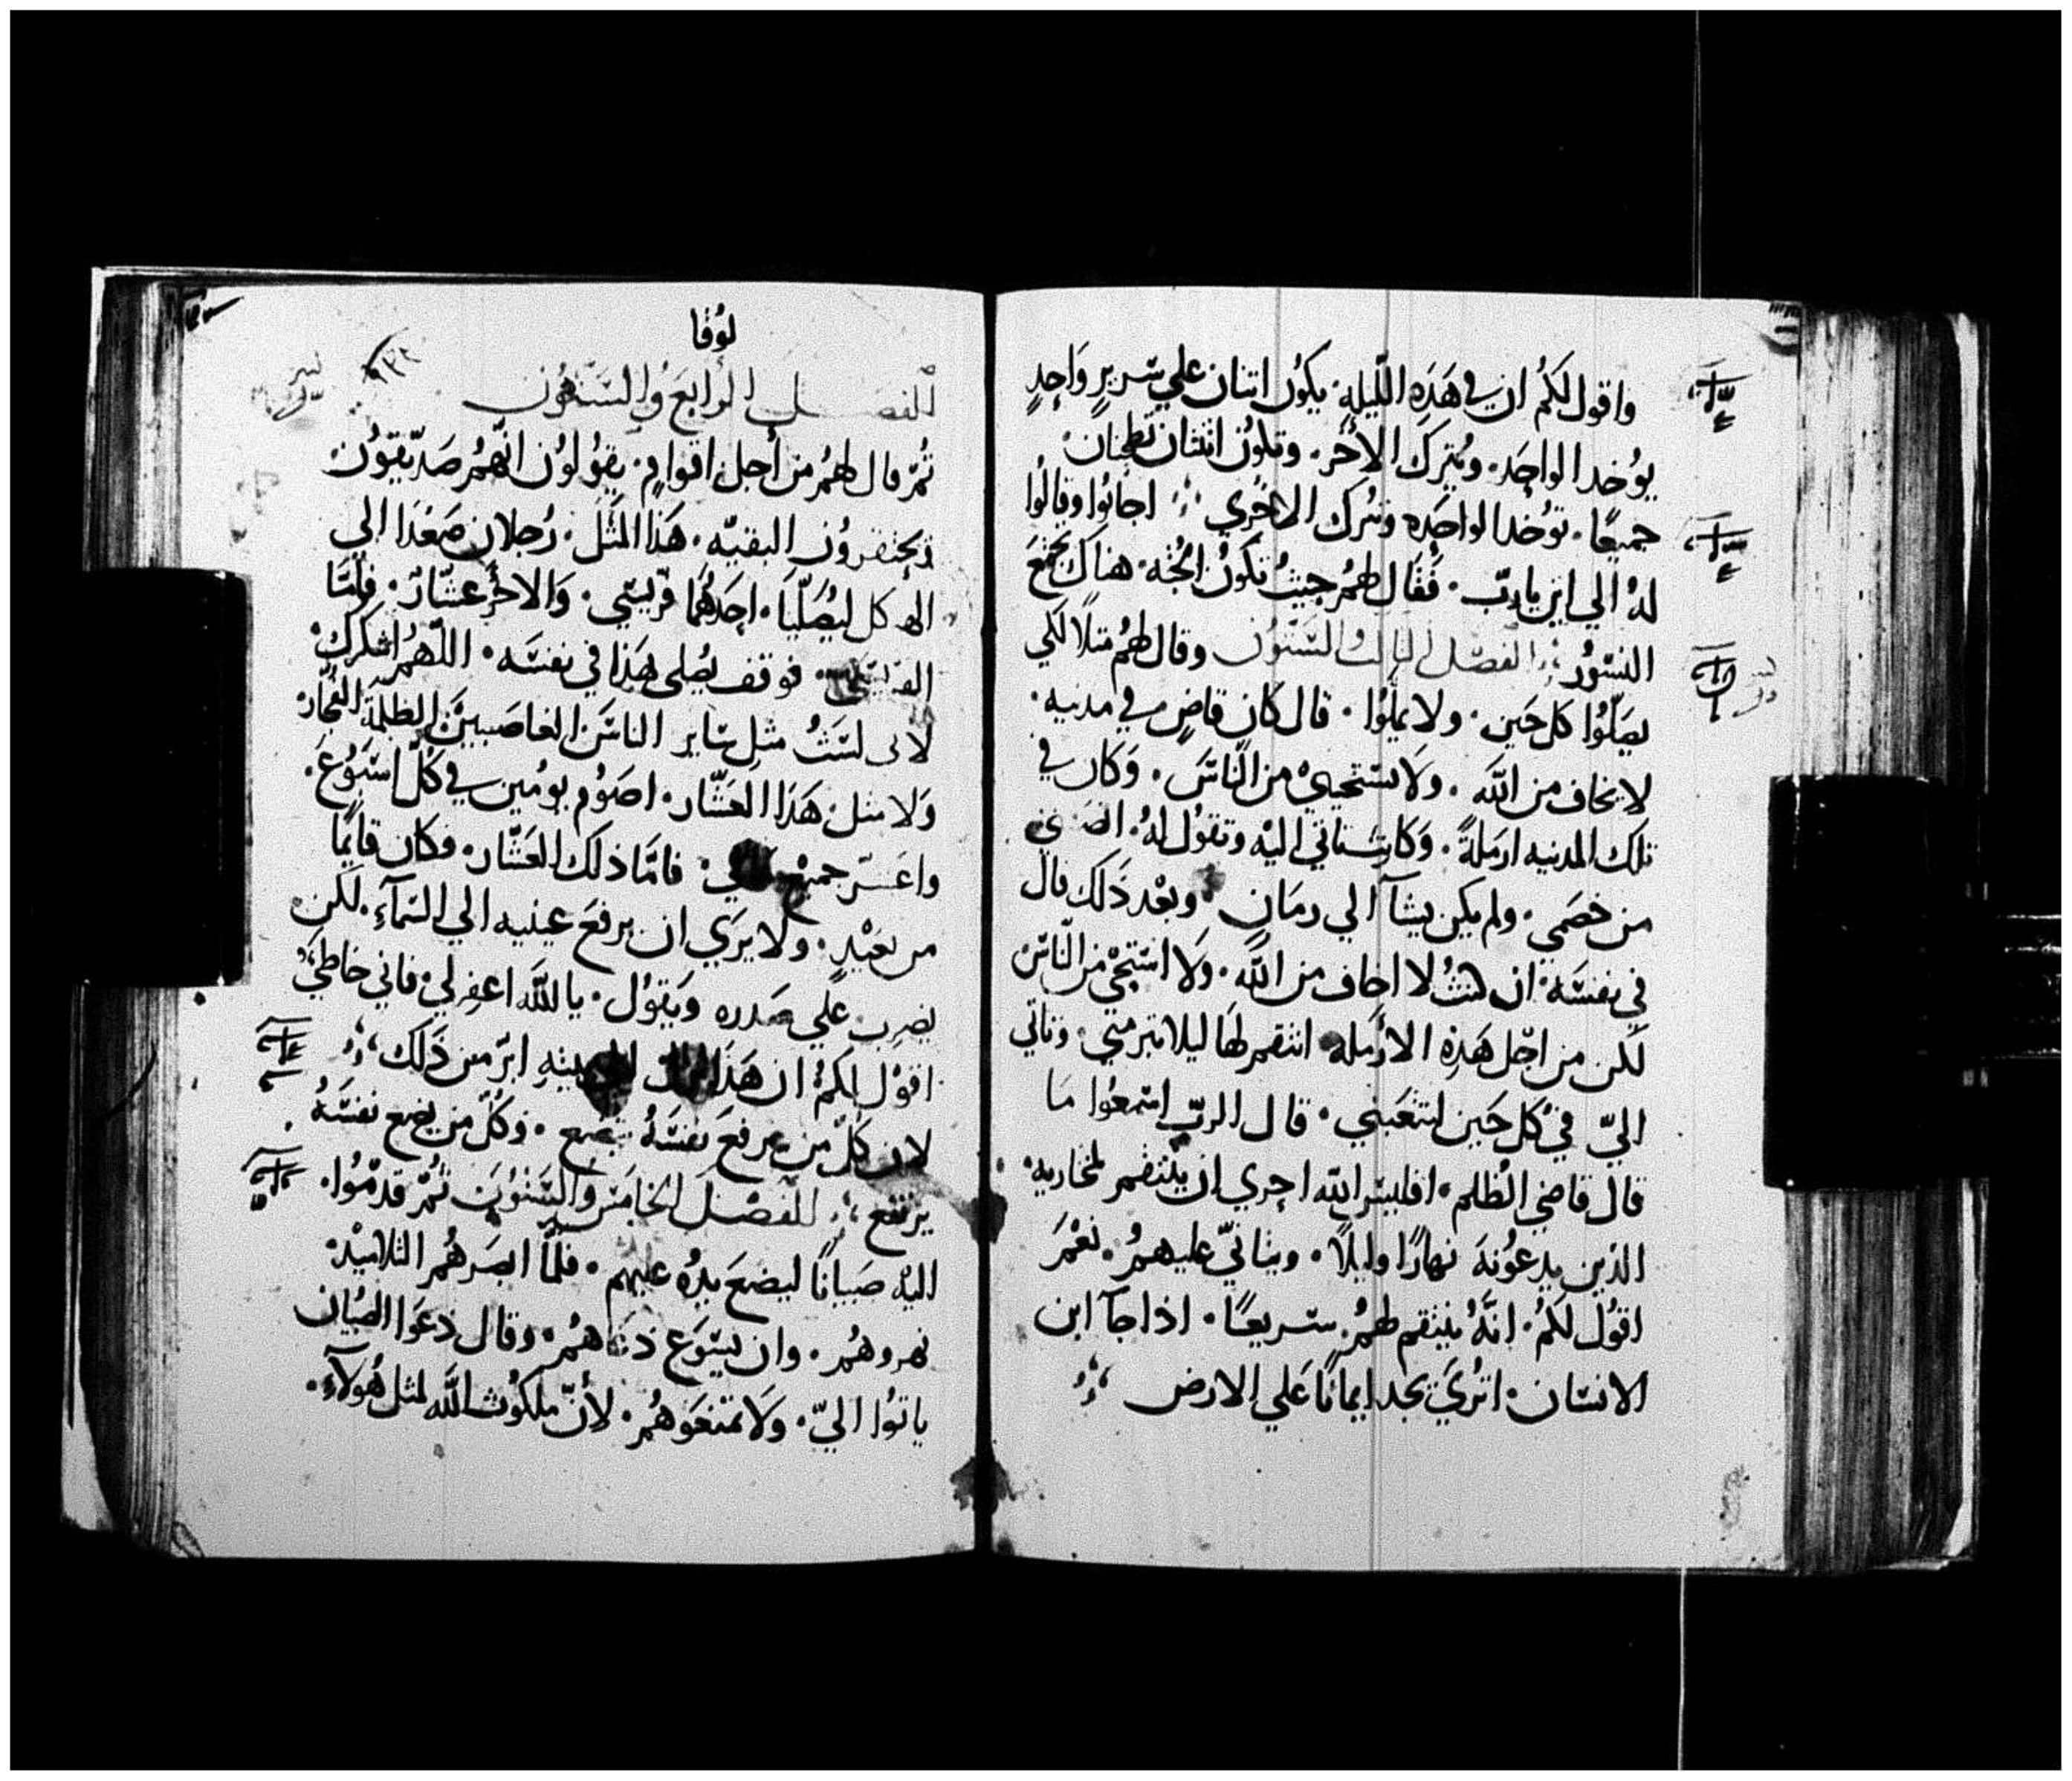 واقول لكمُ ان في هَذِه اللّيلهِ يكوُن اتنان علي سَرير وَاحِدٍ
يوُخد الواحَد. ويُترَك الاخَر. وتكوُن اثنتان تطحنان
جميعًا. توُخد الواحِده وتُترك الاخرَي اجابُوا وقالوُا
لهُ الي اين يارب. فَقال لهمُ حيثُ تكوُن الجُثه. هناكَ تجتمعَ
النسُور الفصل الثالث والستون وقال لهمُ مثلاً لكي
يصَلّوُا كل حَين. ولا يملّوُا. قال كان قاضٍ في مدنيه.
لا يخاف من الله. ولا يستحييُ من الناسَ. وَكان في
تلك المدنيه ارمَلةً. وَكانت تاتي اليْه وتقوُل لهُ.
من خصَمي. ولم يكن يشآ الي زمَان وبعْد ذَلك قال
في نفسَه. ان كنتُ لا اخاف من الله. وَلا استحيْ من الناسَ
لَكن من اجْل هَذِه الارمَله انتقم لهَا ليلا تبرمني. وتاتي
اليّ في كل حَين لتتعَبني. قال الربّ استمعوُا مَا
قال قاضي الظلم. افليسَ الله احِري ان ينتقم لمختاريه.
الذين يدعوُنهَ نهارًا وليلاً. ويتانيّ عليهمُ. نعْمَ
اقوُل لكمُ. انّهُ ينتقم لهمُ سَريعًا. اذا جآ ابن
الانسَان. اترَي يجد ايمانًا عَلي الارض
لوُقا
الفصل الرابعَ والستوُن
تمُّ قال لهمُ من أجل اقوامٍ. يقوُلوُن انّهمُ صَدّيقوُن.
وَيحتقروُن البقيّه. هَذا المثَل. رُجلان صَعدَا الي
الهيكل ليُصَلّيَا. احَدهُما فريسّي. وَالاخَر عشّار. فامَّا
الفريسي. فوقف يصُلي هَذا في نفسَه. اللّهمُ اشكرك
لاني لسَتُ مثل سَاير الناسَ الغاصَبيَن الظلمة الفجُار.
وَلا مثل هَذا العَشّار. اصوُم يومُين في كلّ اسَبوُعَ.
واعَشّر جميع فامّا ذلك العَشّار. فكان قايمًا
من بعَيْدٍ. ولا يرَي ان يرفعَ عينيه الي السّمآءِ. لكن
يضرب عَلي صَدره وَيقوُل. يا الله اغفر لي فاني خاطي
اقوُل لكمُ ان هَذا الي بيتِه ابرّ من ذَلك
لان كلّ من يرفعَ نفسَهُ يتضع. وَكلّ من يضع نفسَهُ
يرتفع الفصل الخامسَ والستوُن تمُّ قدمّوُا.
اليْه صَبيانًا ليضعَ يدهُ عليهم. فلمّا ابصَرهُم التلاميْذ.
نهروهمُ. وان يسَوَع دَعَاهمُ. وقال دعَوا الصبُيان
ياتوُا اليّ. وَلا تمنعَوهمُ. لأنّ ملكوُت الله لمثل هوُلآءِ.